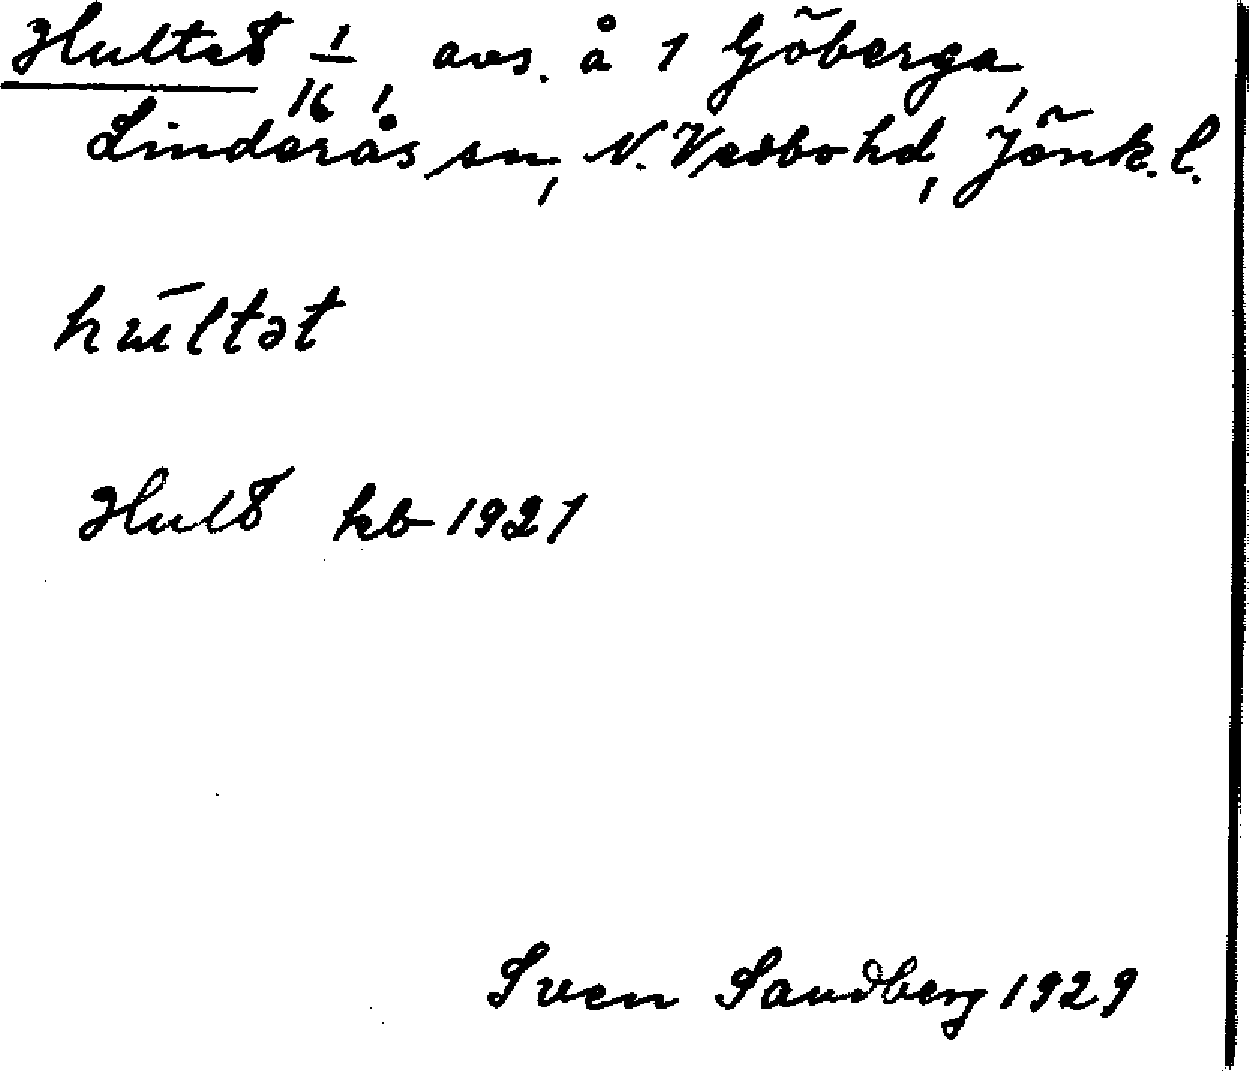 Hultet 1/16, avs. å 1 Göberga,
Linderås sn, N. Vedbo hd, Jönk. l.
hūltət
Hult kb 1921
Sven Sandberg 1929